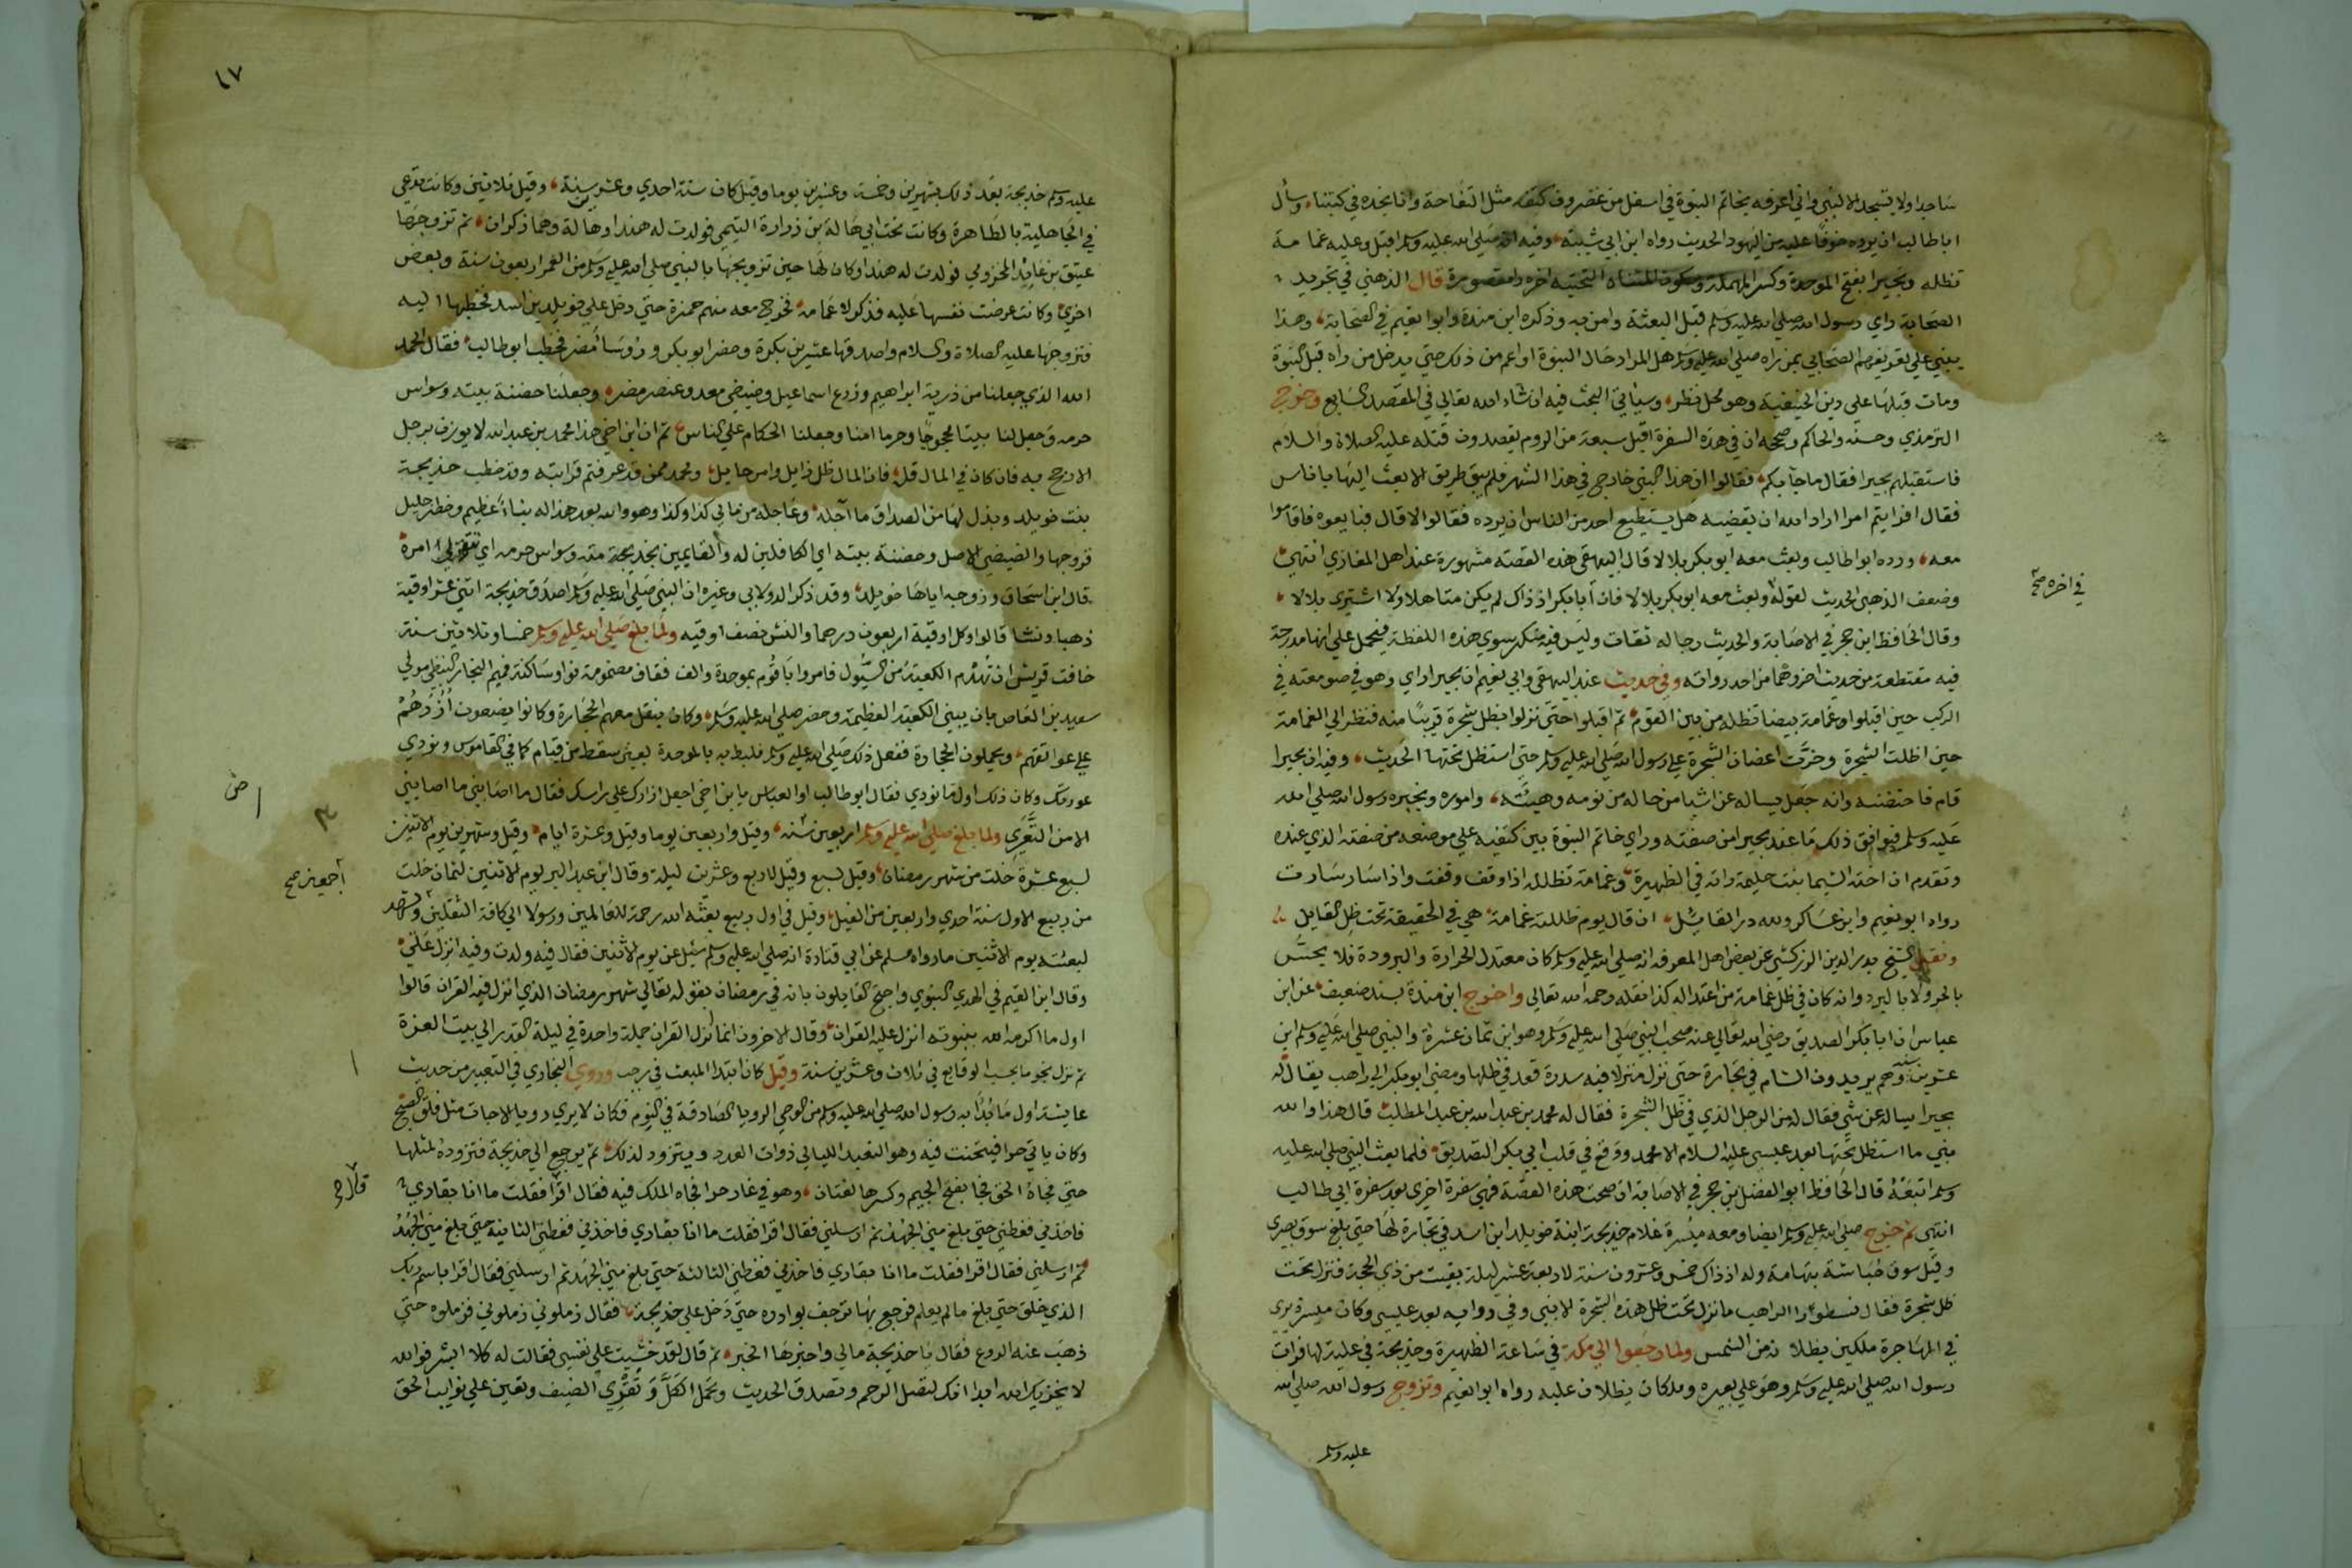 ساجدا ولا تسجد الا لنبي واني اعرفه بخاتم النبوة في اسفل من غضروف كتفه مثل التفاحة وانا نجده في كتبنا وسأل
ابا طالب ان يرده خوفا عليه من اليهود الحديث رواه ابن ابي شيبة وفيه انه صلى الله عليه وسلم اقبل وعليه غمامة
تظله وبحيرا بفتح الموحدة وكسر المهملة وسكون المثناه التحتية اخره را مقصورة قال الذهبي في تجريد
الصحابة راي رسول الله صلى الله عليه وسلم قبل البعثة وامن به وذكره ابن مندة وابو نعيم في الصحابة وهذا
يبني علي تعريفهم الصحابي بمن راه صلي الله عليه وسلم هل المراد حال النبوة او اعم من ذلك حتي يدخل من راه قبل النبوة
ومات قبلها علي دين الحنيفية وهو محل نظر وسياتي البحث فيه ان شاء الله تعالي في المقصد السابع وخرج
الترمذي وحسنه والحاكم وصححه ان في هذه السفرة اقبل سبعة من الروم يقصدون قتله عليه الصلاة والسلام
فاستقبلهم بحيرا فقال ما جآ بكم فقالوا ان هذا النبي خارج في هذا الشهر فلم يبق طريق الا بعث اليها باناس
فقال افرايتم امرا اراد الله ان يقضيه هل يستطيع احد من الناس ان يرده فقالوا لا قال فبايعوه فاقاموا
معه ورده ابوا طالب وبعث معه ابو بكر بلالا قال البيهقي هذه القصة مشهورة عند اهل المغازي انتهي
وضعف الذهبي الحديث لقوله وبعث معه ابو بكر بلالا فان أبا بكر اذ ذاك لم يكن متاهلا ولا اشتري بلالا
في اخره صح
وقال الحافظ ابن حجر في الاصابة والحديث رجاله ثقات وليس فيه منكر سوي هذه اللفظة فيحمل علي انها مدرجة
فيه مقتطعة من حديث اخر وهما من احد رواته وفي حديث عند البيهقي وابي نعيم ان بحيرا راي وهو في صومعته في
الركب حين اقبلوا وغمامة بيضا تظله من بين القوم ثم اقبلوا حتى نزلوا بظل شجرة قريبا منه فنظر الي الغمامة
حين اظلت الشجرة وخرت اغصان الشجرة علي رسول الله صلي الله عليه وسلم حتي استظل تحتها الحديث وفيه ان بحيرا
قام فاحتضنه وانه جعل يساله عن اشيا من حاله من نومه وهيئته واموره ويخبره رسول الله صلي الله
عليه وسلم فيوافق ذلك ما عند بحيرا من صفته وراي خاتم النبوة بين كتفيه علي موضعه من صفته الذي عنده
وتقدم ان اخته الشيما بنت حليمة راته في الظهيرة وغمامة تظلله اذا وقف وقفت واذا سار سارت
رواه ابو نعيم وابن عساكر ولله در القايل ان قال يوم ظللته غمامة هي في الحقيقة تحت ظل القايل
ونقل الشيخ بدر الدين الزركشي عن بعض اهل المعرفه انه صلي الله عليه وسلم كان معتدل الحرارة والبرودة فلا يحس
بالحر ولا بالبرد وانه كان في ظل غمامة من اعتداله كذا نقله رحمه الله تعالي واخرج ابن مندة بسند ضعيف عن ابن
عباس ان ابا بكر الصديق رضي الله تعالي عنه صحب النبي صلي الله عليه وسلم وهو ابن ثمان عشرة والنبي صلي الله عليه وسلم ابن
عشرين سنه وهم يريدون الشام في تجارة حتى نزل منزلا فيه سدرة قعد في ظلها ومضي ابو بكر الي راهب يقال له
بحيرا يساله عن شي فقال له من الرجل الذي في ظل الشجرة فقال له محمد بن عبد الله بن عبد المطلب قال هذا والله
نبي ما استظل تحتها بعد عيسى عليه السلام الا محمد ووقع في قلب ابي بكر التصديق فلما بعث النبي صلي الله عليه
وسلم اتبعه قال الحافظ ابو الفضل بن حجر في الاصابة ان صحت هذه القصة فهي سفرة اخري بعد سفرة ابي طالب
انتهي ثم خرج صلي الله عليه وسلم ايضا ومعه ميسرة غلام خديجة ابنة خويلد ابن اسد في تجارة لها حتي بلغ سوق بصري
وقيل سوق حباشة بتهامة وله اذ ذاك خمس وعشرون سنة لاربعة عشر ليلة بقيت من ذي الحجة فنزل تحت
ظل شجرة فقال نسطورا الراهب ما نزل تحت ظل هذه الشجرة الا نبي وفي رواية بعد عيسي وكان ميسرة يري
في الهاجرة ملكين يظلانه من الشمس ولما رجعوا الي مكة في ساعة الظهيرة وخديجة في علية لها فرات
رسول الله صلي الله عليه وسلم وهو علي بعيره وملكان يظلان عليه رواه ابوا نعيم وتزوج رسول الله صلي الله
عليه وسلم
١٧
عليه وسلم خديجة بعد ذلك بشهرين وخمسة وعشرين يوما وقيل كان سنة احدي وعشرين سنة وقيل ثلاثين وكانت تدعي
في الجاهلية بالطاهرة وكانت تحت ابي هالة بن زرارة التيمي فولدت له هندا وهالة وهما ذكران ثم تزوجها
عتيق بن عايد المخزومي فولدت له هندا وكان لها حين تزويجها بالنبي صلي الله عليه وسلم من العمر اربعون سنة وبعض
اخري وكانت عرضت نفسها عليه فذكر لاعمامه فخرج معه منهم حمزة حتي دخل علي خويلد بن اسد فخطبها اليه
فتزوجها عليه الصلاة والسلام واصدقها عشرين بكرة وحضر ابو بكر ورؤسا مضر فخطب ابو طالب فقال الحمد
الله الذي جعلنا من ذرية ابراهيم وزرع اسماعيل وضيضي معد وعنصر مضر وجعلنا حضنة بيته وسواس
حرمه وجعل لنا بيتا محجوجا وحرما امنا وجعلنا الحكام علي الناس ثم ان ابن اخي هذا محمد بن عبد الله لا يوزن برجل
الا رجح به فان كان في المال قل فان المال ظل زايل وامر حايل ومحمد ممن قد عرفتم قرابته وقد خطب خديجة
بنت خويلد وبذل لها من الصداق ما آجله وعاجله من مالي كذا وكذا وهو والله بعد هذا له نباء عظيم وخطر جليل
فزوجها والضيضي الاصل وحضنة بيته اي الكافلين له والقايمين بخدمته وسواس حرمه اي متولي امره
قال ابن اسحاق وزوجه اياها خويلد وقد ذكر الدولابي وغيره ان النبي صلي الله عليه وسلم اصدق خديجة اثنتي عشر اوقية
ذهبا ونشا قالوا وكل اوقية اربعون درهما والنش نصف اوقيه ولما بلغ صلي الله عليه وسلم خمسا وثلاثين سنة
خافت قريش ان تهدم الكعبة من السيول فامروا باقوم بموحدة والف فقاف مضمومة فواو ساكنة فميم النجار القبطي مولي
سعيد بن العاص بان يبني الكعبة العظيمة وحضر صلي الله عليه وسلم وكان ينقل معهم الحجارة وكانوا يضعون ازرهم
علي عواتقهم ويحملون الحجارة ففعل ذلك صلي الله عليه وسلم فلبط به بالموحدة يعني سقط من قيام كما في القاموس ونودي
عورتك وكان ذلك اول ما نودي فقال ابو طالب او العباس يا ابن اخي اجعل ازارك على راسك فقال ما اصابني ما اصابني
الا من التعري ولما بلغ صلي الله عليه وسلم اربعين سنه وقيل واربعين يوما وقيل وعشرة ايام وقيل وشهرين يوم الاثنين
لسبع عشرة خلت من شهر رمضان وقيل لسبع وقيل لاربع وعشرين ليلة وقال ابن عبد البر يوم الاثنين لثمان خلت
من ربيع الاول سنة احدي واربعين من الفيل وقيل في اول ربيع بعثه الله رحمة للعالمين ورسولا الي كافة الثقلين ويشهد
اجمعين صح
لبعثته يوم الاثنين ما رواه مسلم عن ابي قتادة انه صلي الله عليه وسلم سئل عن يوم الاثنين فقال فيه ولدت وفيه انزل علي
وقال ابن القيم في الهدي النبوي واحتج القايلون بانه في رمضان بقوله تعالي شهر رمضان الذي انزل فيه القران قالوا
اول ما اكرمه الله بنبوته انزل عليه القران وقال الاخرون انما انزل القران جملة واحدة في ليلة القدر الي بيت العزة
ثم نزل نجوما بحسب الوقايع في ثلاث وعشرين سنة وقيل كان ابتدا المبعث في رجب وروي البخاري في التعبير من حديث
عايشة اول ما بدأ به رسول الله صلي الله عليه وسلم من الوحي الرويا الصادقة في النوم فكان لا يري رويا الا جات مثل فلق الصبح
وكان ياتي حرا فيتحنث فيه وهو التعبد الليالي ذوات العدد ويتزود لذلك ثم يرجع الي خديجة فتزوده لمثلها
حتي فجاه الحق فجا بفتح الجيم وكسرها لغتان وهو في غار حرا فجاه الملك فيه فقال اقرا فقلت ما انا بقاري
فاخذني فغطني حتي بلغ مني الجهد ثم ارسلني فقال اقرا فقلت ما انا بقاري فاخذني فغطني الثانية حتي بلغ مني الجهد
ثم ارسلني فقال اقرا فقلت ما انا بقاري فاخذني فغطني الثالثة حتي بلغ مني الجهد ثم ارسلني فقال اقرا باسم ربك
الذي خلق حتي بلغ ما لم يعلم فرجع بها ترجف بوادره حتي دخل علي خديجة فقال زملوني زملوني فزملوه حتي
ذهب عنه الروع فقال يا خديجة مالي واخبرها الخبر ثم قال لقد خشيت علي نفسي فقالت له كلا ابشر فوالله
لا يخزيك الله ابدا انك لتصل الرحم وتصدق الحديث وتحمل الكل وتقري الضيف وتعين علي نوايب الحق